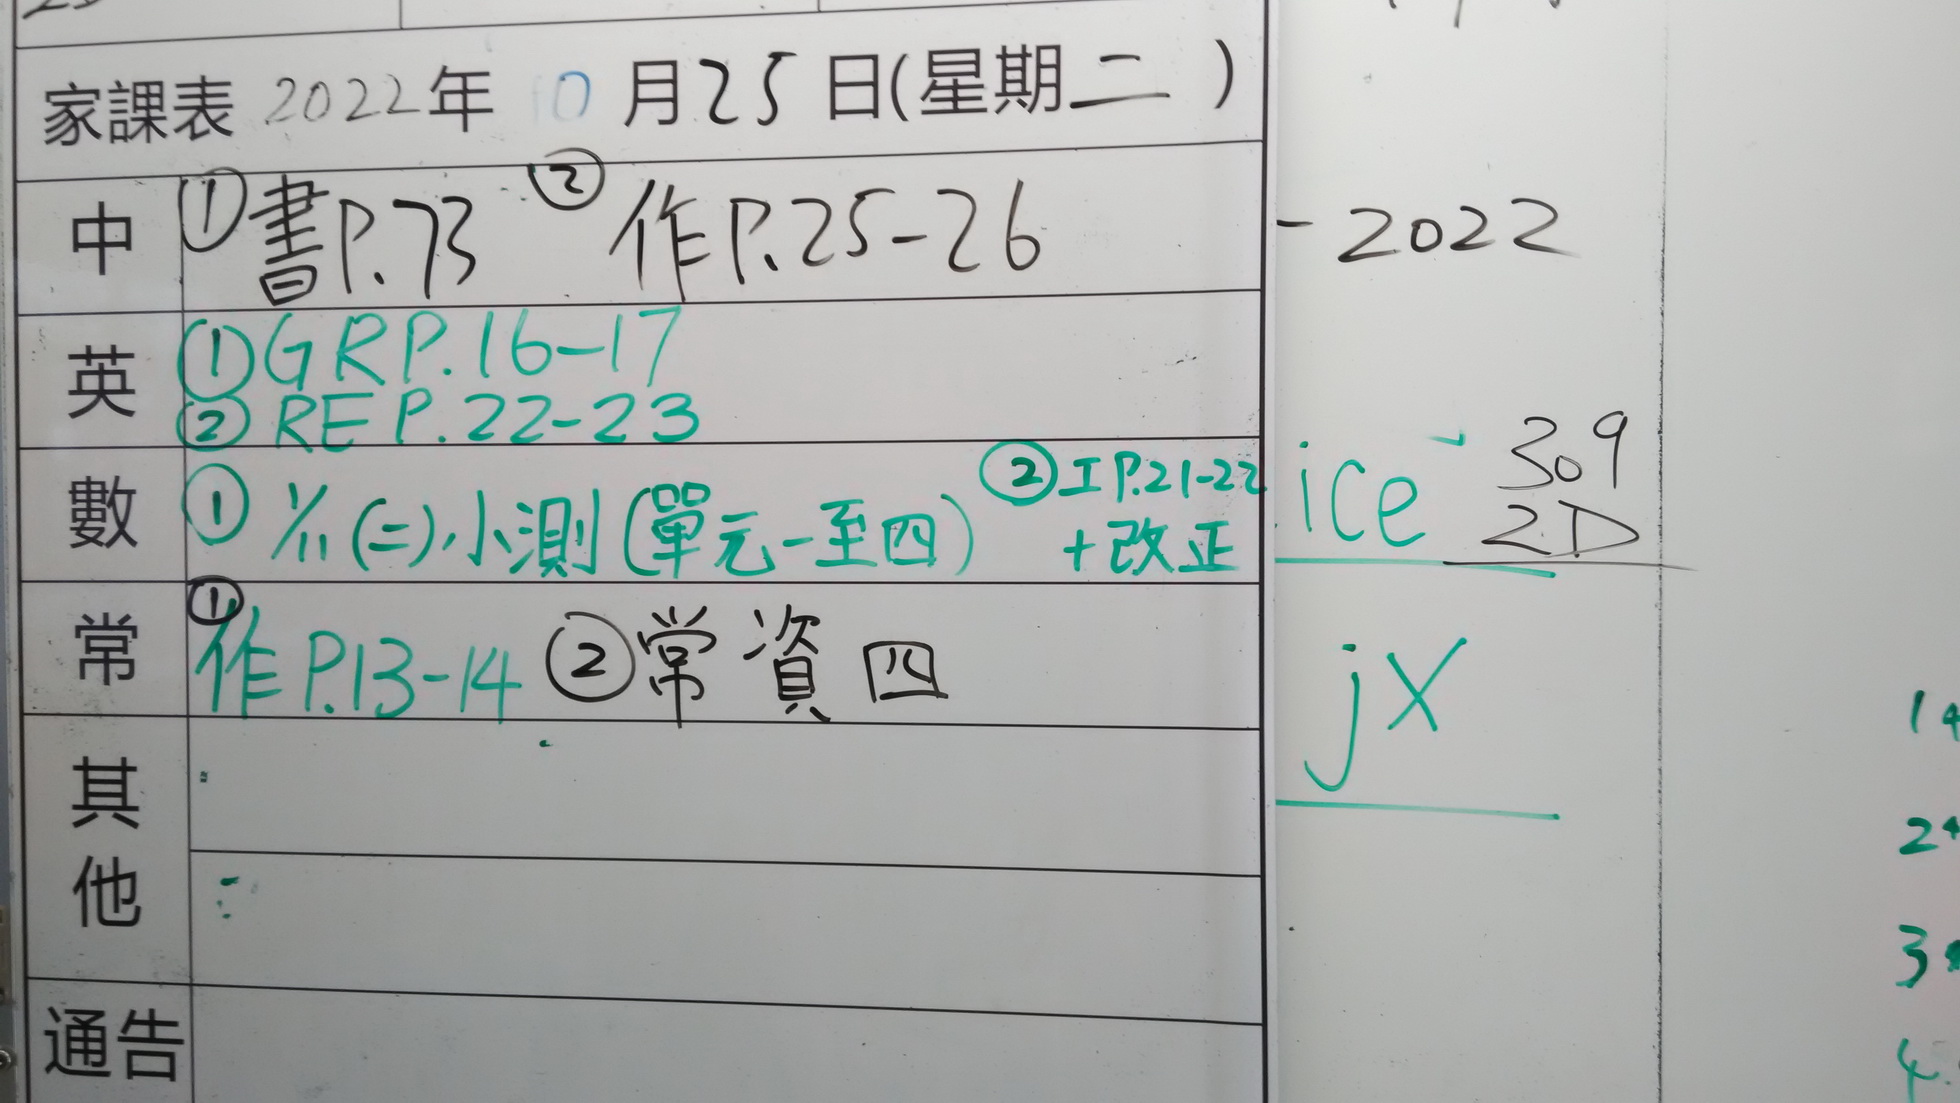 家課表 2022年 10月25日(星期二)
中 ①書P.73 ②作P.25-26
英 ①GR P.16-17
②RE P.22-23
數 ①1/11(二)小測(單元一至四) ②工P.21-22
+改正
常 ①作P.13-14 ②常資四
其他
通告
-2022
ice
309
2D
jx
1
2
3
4